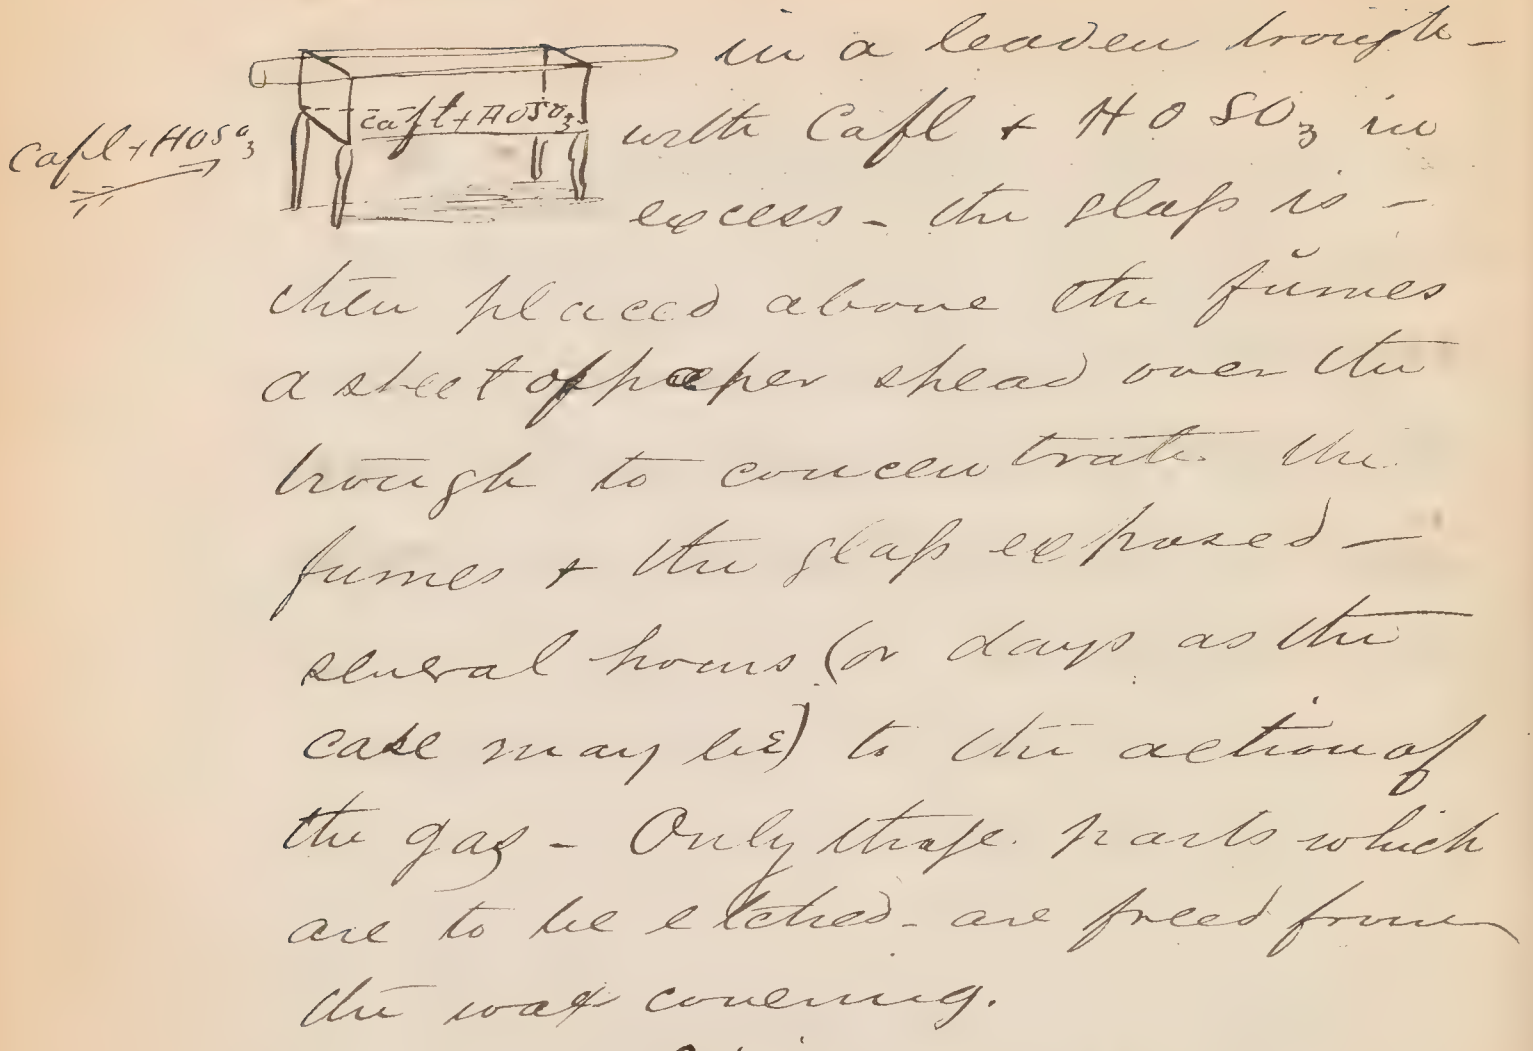 in a leaden trough –
Cafl + HOSO3
cafl + HOSO3
with Cafl + HOSO3 in
excess – the glass is –
then placed above the fumes
a sheet of paper spead over the
trough to concentrate the
fumes + the glass exposed –
several hours (or days as the
case may be) to the action of
the gas – Only those parts which
are to be etched – are freed from
the wax covering.